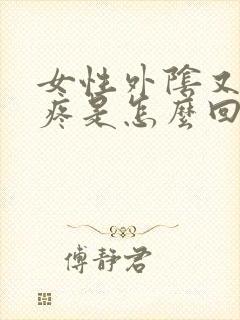 女性外陰又
疼是怎麼回
傅靜君